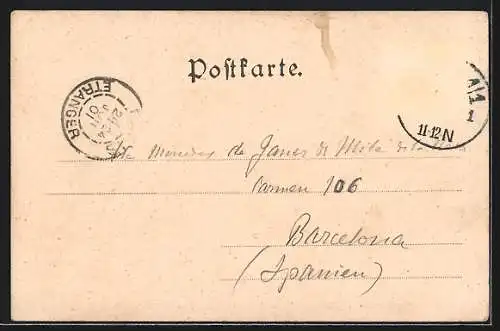 Postkarte.
ETRANGER
01
A 1
1
11-12 N
Mercedes de Janer de Milá de la
Carmen 106
Barcelona
(Spanien)